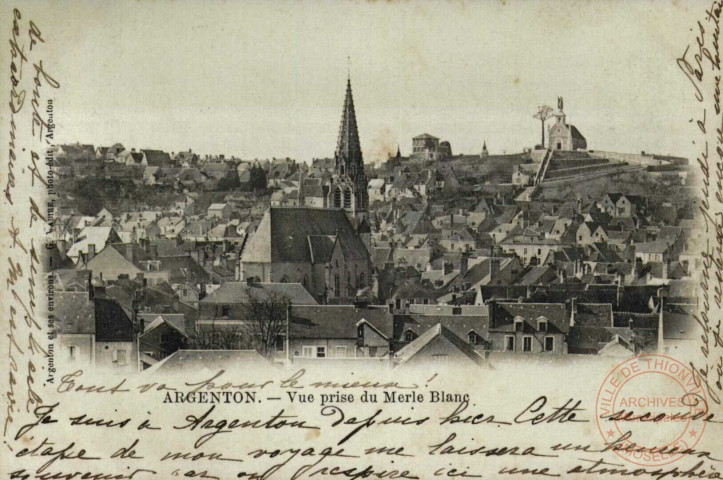 Tout va pour le mieux !
ARGENTON. — Vue prise du Merle Blanc
Je suis à Argenton depuis hier. Cette seconde
étape de mon voyage me laissera un heureux
souvenir car on respire ici une atmosphère
de bonté et de
extraordinaires
Je repartirai jeudi pour Paris
Argenton et ses environs — photo-édit., Argenton
VILLE DE THIONVILLE
ARCHIVES
MOSELLE